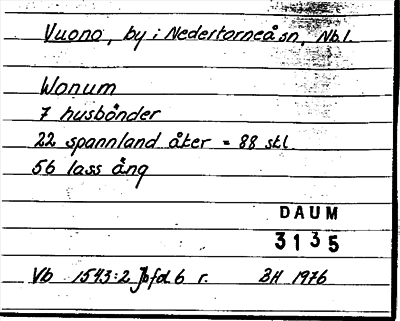 Vuono, by i Nedertorneå sn, Nbl.
Wonum
7 husbönder
22 spannland åker = 88 skl
56 lass äng
DAUM
3135
Vb 1543:2 fol 6 r. BH 1976